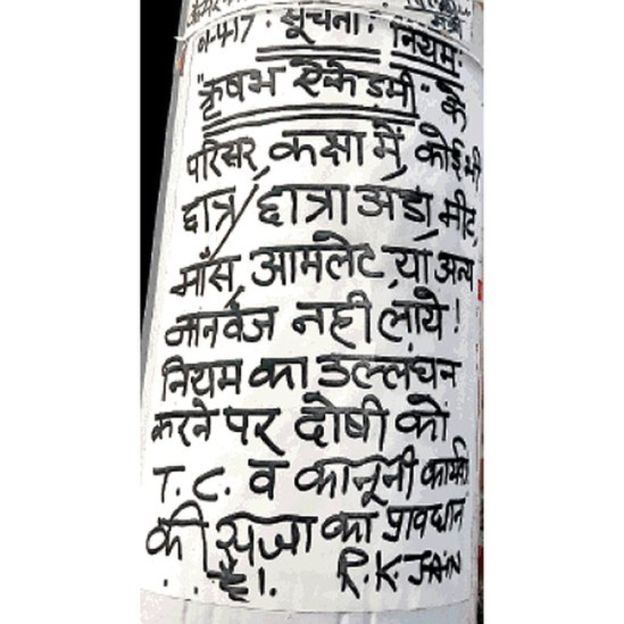 01-4-17: सूचना: नियम:
"ऋषभ ऐकेडमी" के
परिसर, कक्षा में, कोई भी
छात्र/छात्रा अंडा, मीट,
माँस, आमलेट, या अन्य
नानवेज नही लाये!
नियम का उल्लघन
करने पर दोषी को
T.C. व कानूनी कार्यवाही
की सजा का प्रावधान
है। R.K. JAIN